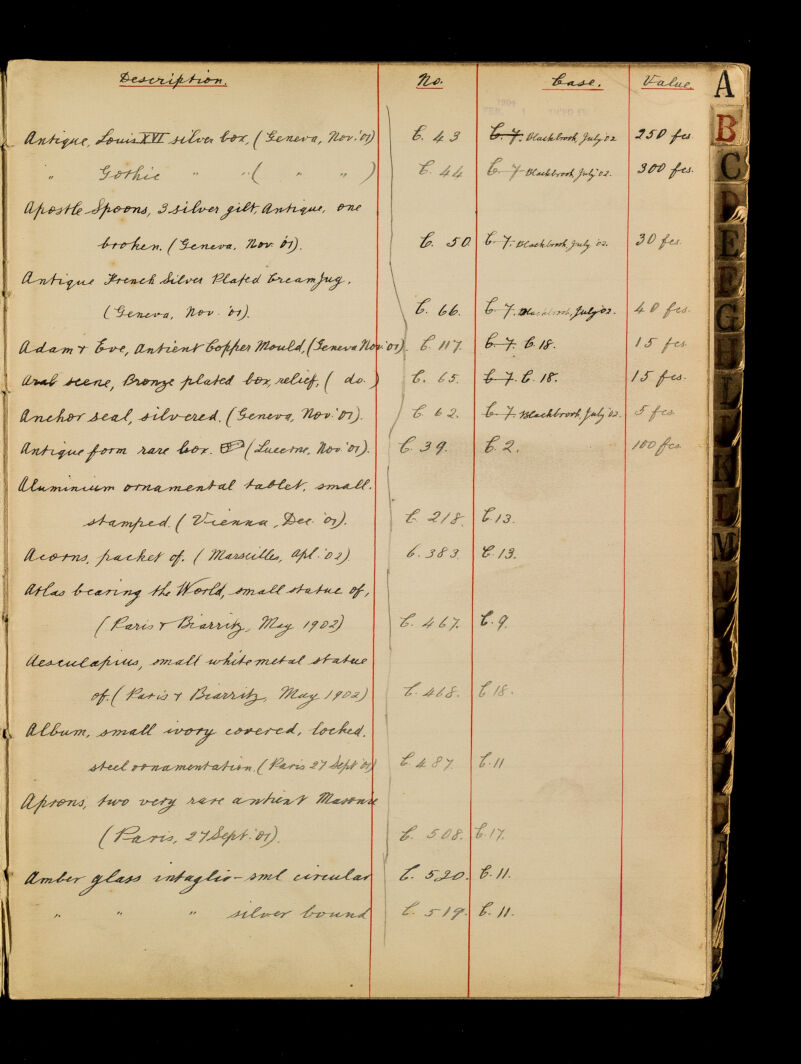 Description. No. Case. Value.
Antique, Louis XVI silver box, (Geneva, Nov. '01) C. 43 C. 7. Blackbrook, July '02 250 fcs
" Gothic " " ( " " ) C. 44 C. 7. Blackbrook July '02. 300 fcs.
Apostle-Spoons, 3 silver gilt, Antique, one
broken. (Geneva, Nov. '01). C. 50 C. 7. Blackbrook, July '02. 30 fcs.
Antique French Silver Plated Creamjug.
(Geneva, Nov. '01). C. 66. C. 7. Blackbrook, July '02. 40 fcs.
Adam & Eve, Antient Copper Mould, (Geneva Nov. '01). C. 117. C. 7. C. 18. 15 fcs
Arab scene, Bronze plated box, relief, ( do. ) C. 65. C. 7. C. 18. 15 fcs.
Anchor seal, silvered. (Geneva, Nov. '01). C. 62. C. 7. Blackbrook, July '02. 5 fcs
Antique form rare box. (Lucerne, Nov. '01). C. 39. C. 2. 100 fcs
Aluminium ornamental tablet, small.
stamped. (Vienna, Dec. '01). C. 218. C. 13.
Acorns, packet of. (Marseilles, Apl. '02) C. 383. C. 13.
Atlas bearing the World, small statue of,
(Paris & Biarritz, May 1902) C. 467. C. 9.
Aesculapius, small white metal statue
of. (Paris & Biarritz, May 1902) C. 468. C 18.
Album, small ivory covered, locked.
steel ornamentation. (Paris 27 Sept '01) C. 487. C. 11
Aprons, two very rare antient Masonic
(Paris, 27 Sept. '01). C. 508. C. 17.
Amber glass intaglio - sml circular C. 520. C. 11.
" " " silver bound C. 519. C. 11.
A
B
C
D
E
F
G
H
I
K
L
M